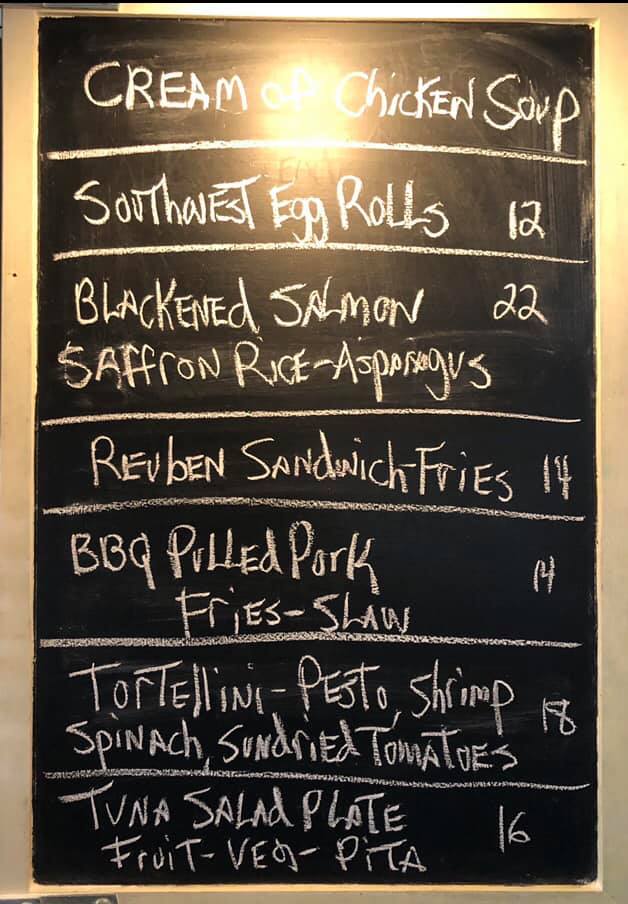 CREAM OF CHICKEN SOUP
SOUTHWEST Egg ROLLS 12
BLACKENED SALMON 22
SAFFRON RICE-ASPARAgUS
REUBEN SANDWICH-FRIES 14
BBQ PULLED PORK
14
FRIES-SLAW
TORTELLINI-PESTO, SHRIMP
18
SPINACH, SUNDRIED TOMATOES
TUNA SALAD PLATE
16
FRUIT-VEG-PITA